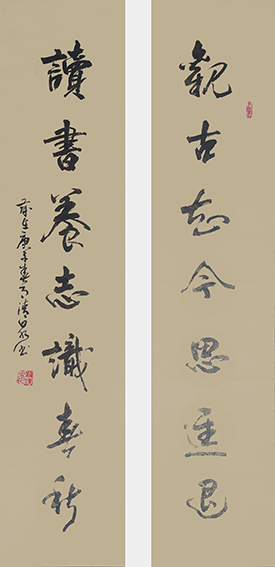 觀古知今思進退
讀書養志識春秋
歲在庚子春月清泉書